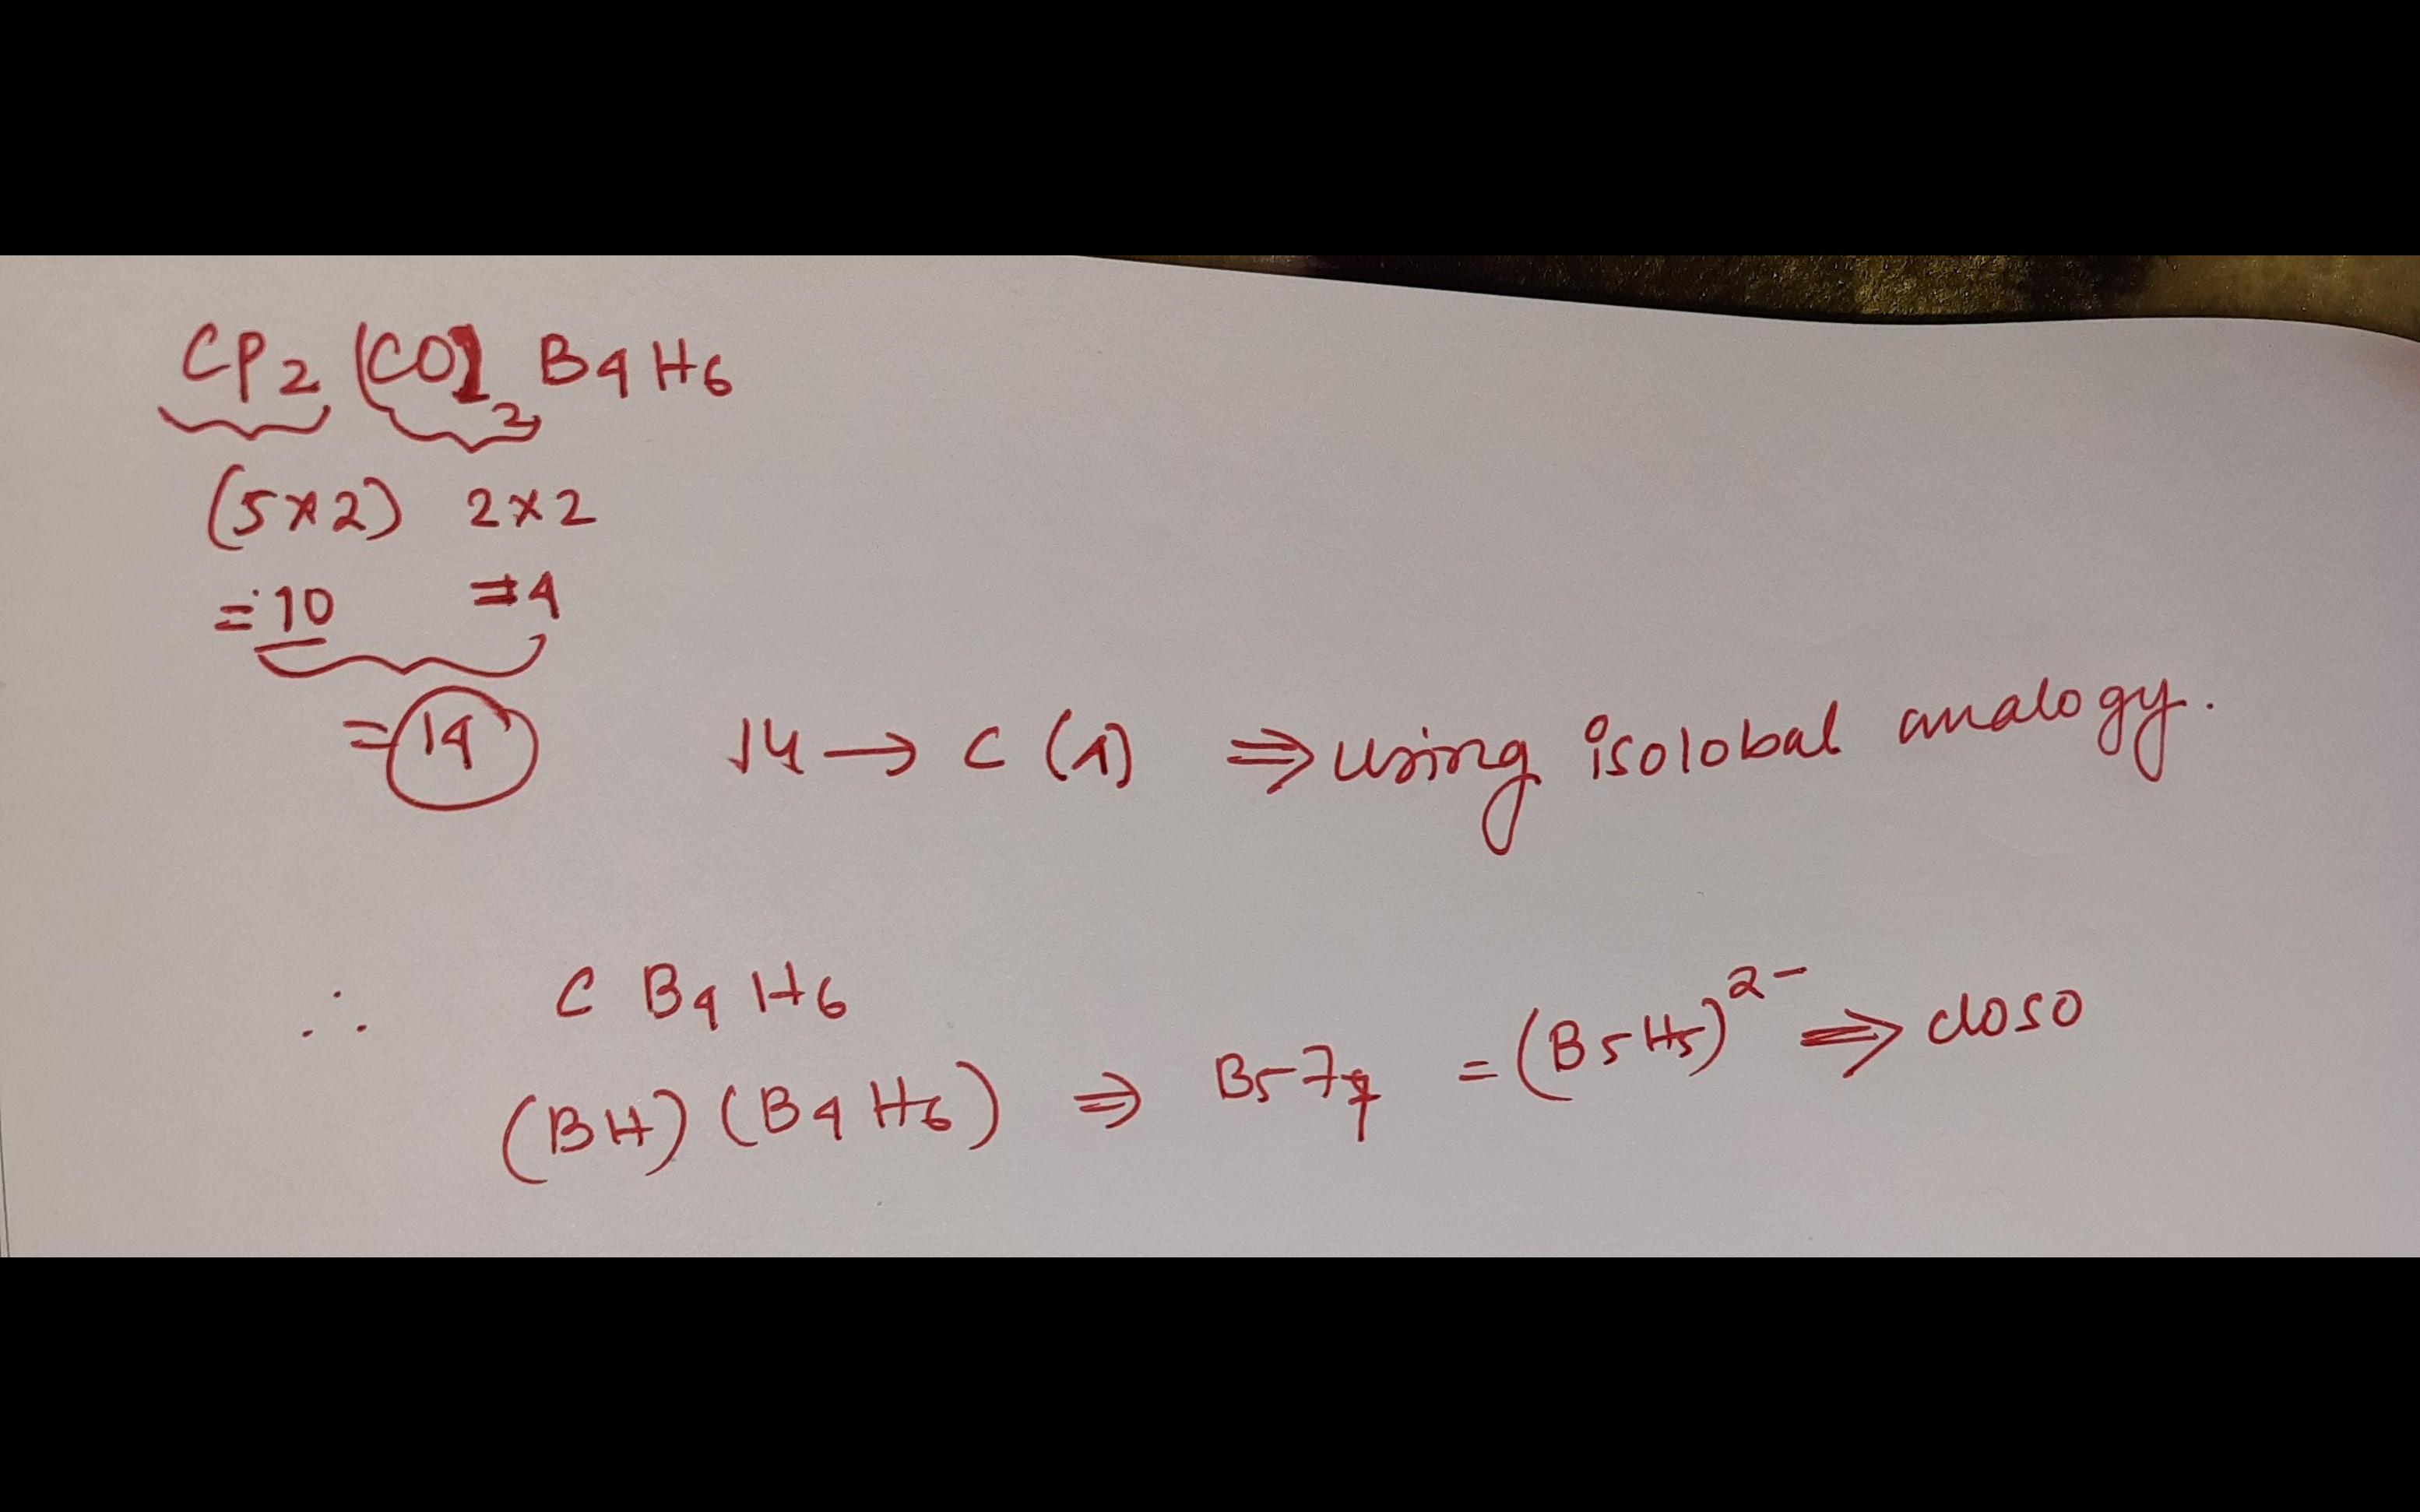 CP2 (CO)2 B4H6
(5×2) 2×2
=10 =4
=14 14→C(4) ⇒ using isolobal analogy.
∴ C B4 H6
(BH)(B4H6) ⇒ B5 = (B5H5)2- ⇒ closo